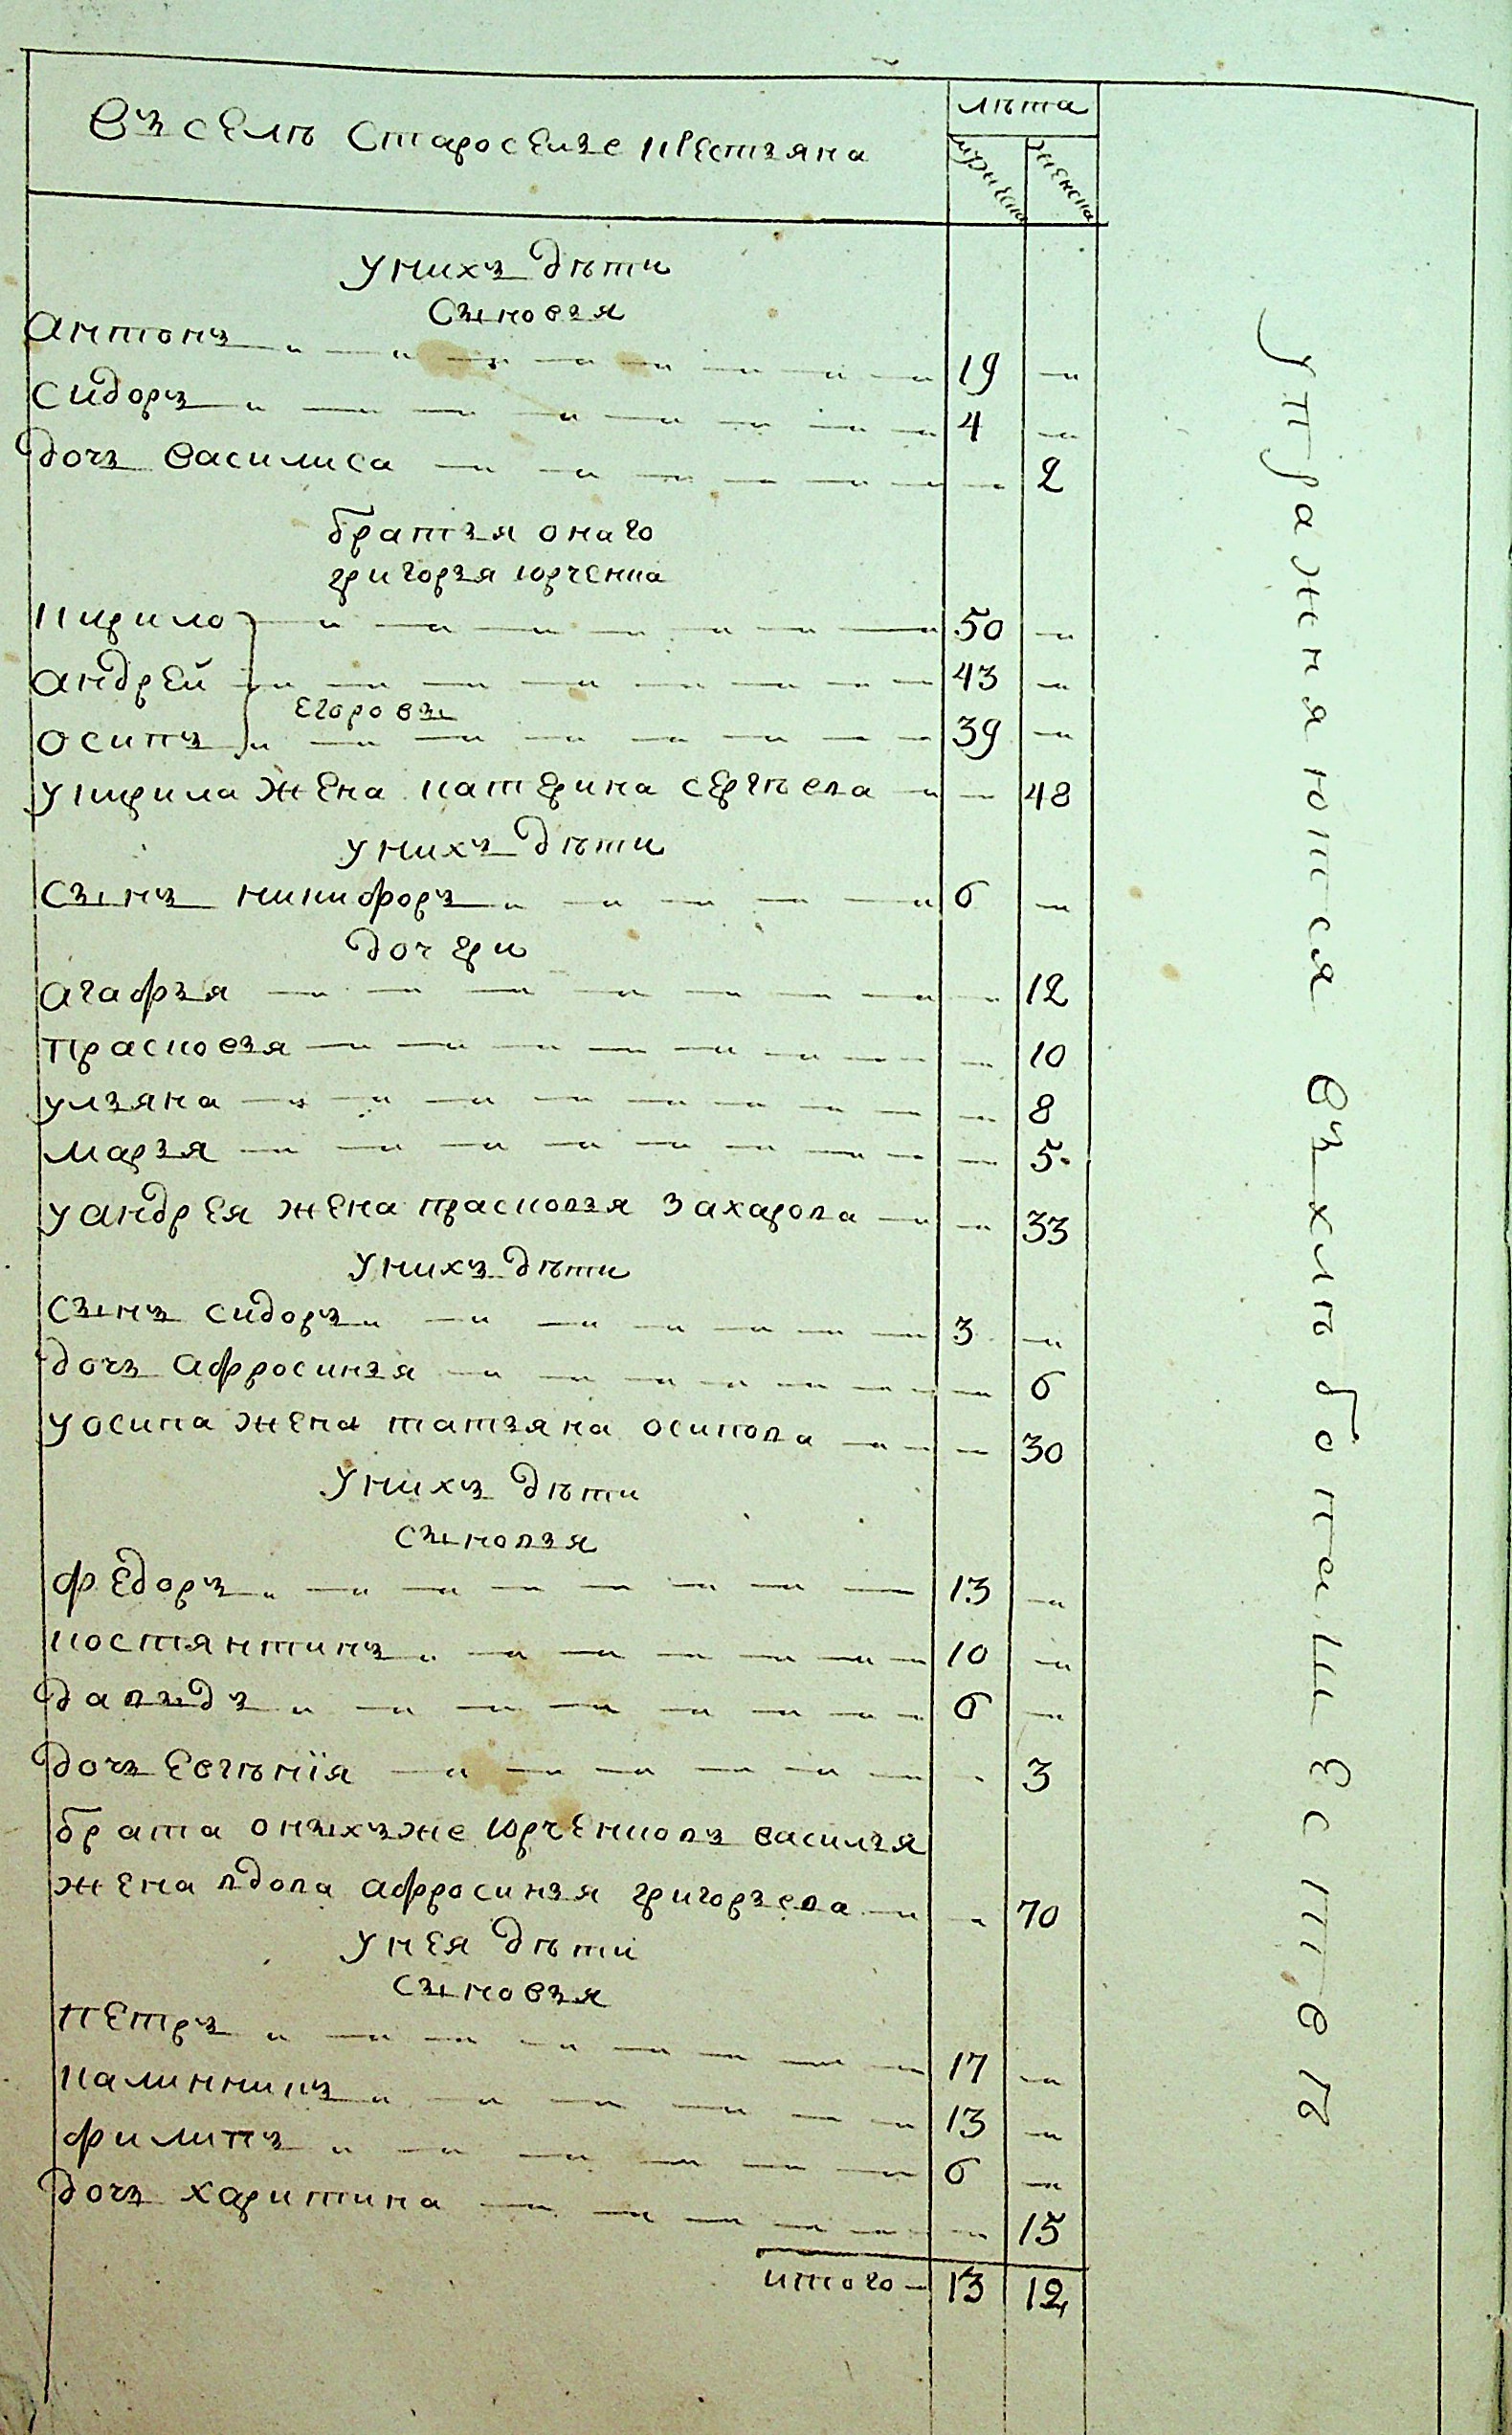 Въ селѣ Староселье крестьяна
лѣта
мужеска
женска
У нихъ дѣти
Сыновья
Антонъ 19
Сидоръ 4
Дочь Василиса 2
Братья онаго
Григорья Юрченка
Кирило 50
Андрей 43
Егоровы
Осипъ 39
У Кирила жена Катерина Сергѣева 48
У нихъ дѣти
Сынъ Никифоръ 6
Дочери
Агафья 12
Прасковья 10
Ульяна 8
Марья 5
У Андрея жена Прасковья Захарова 33
У нихъ дѣти
Сынъ Сидоръ 3
Дочь Афросинья 6
У Осипа жена Татьяна Осипова 30
У нихъ дѣти
Сыновья
Федоръ 13
Костянтинъ 10
Давыдъ 6
Дочь Евгѣнія 3
Брата оныхъ же Юрченковъ Василья
жена вдова Афросинья Григорьева 70
У нея дѣти
Сыновья
Петръ 17
Калинникъ 13
Филипъ 6
Дочь Харитина 15
итого 13 12
Упражняются въ хлѣбопашествѣ